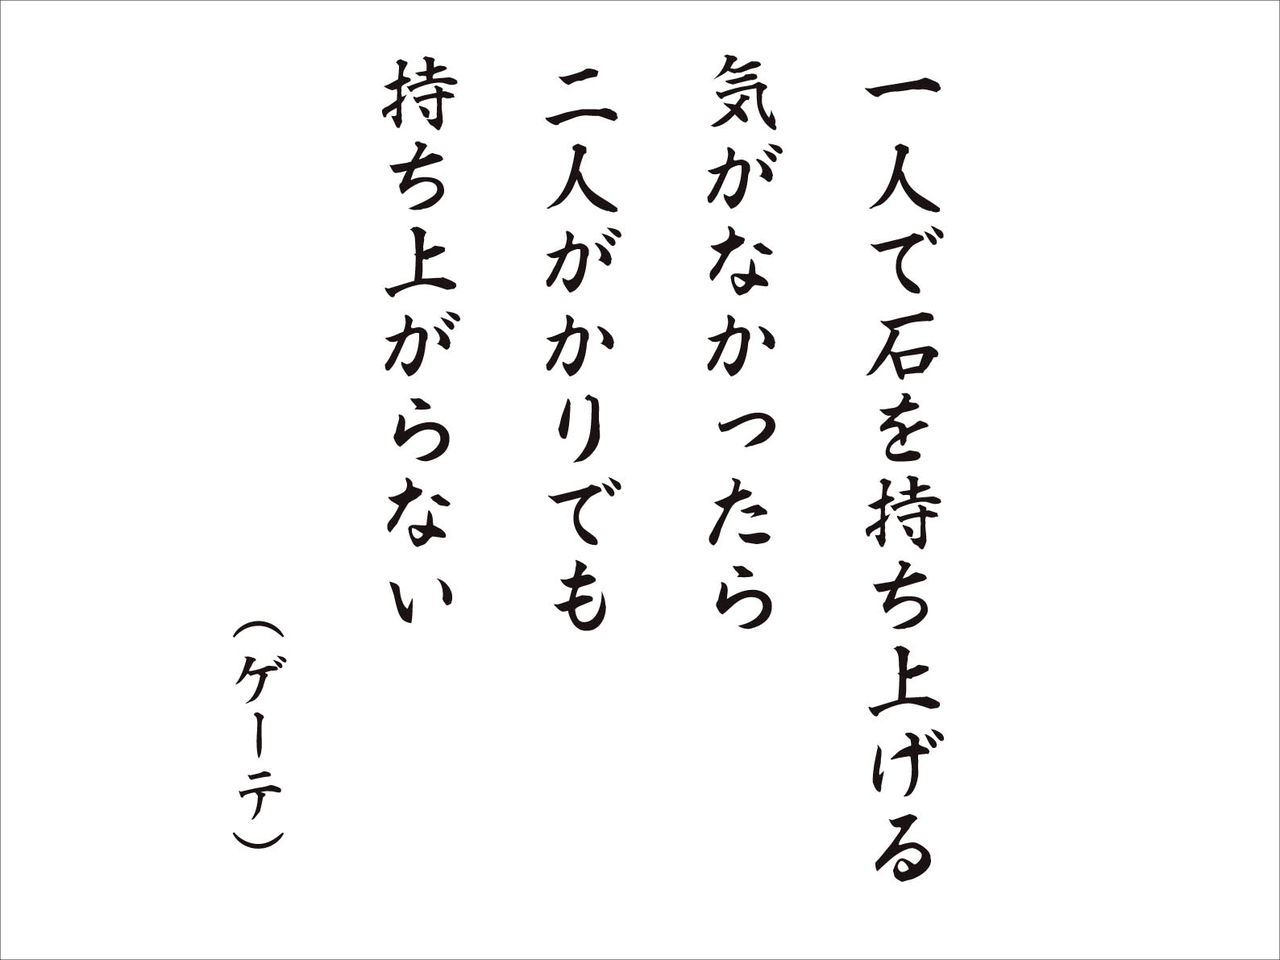 一人で石を持ち上げる
気がなかったら
二人がかりでも
持ち上がらない
（ゲーテ）